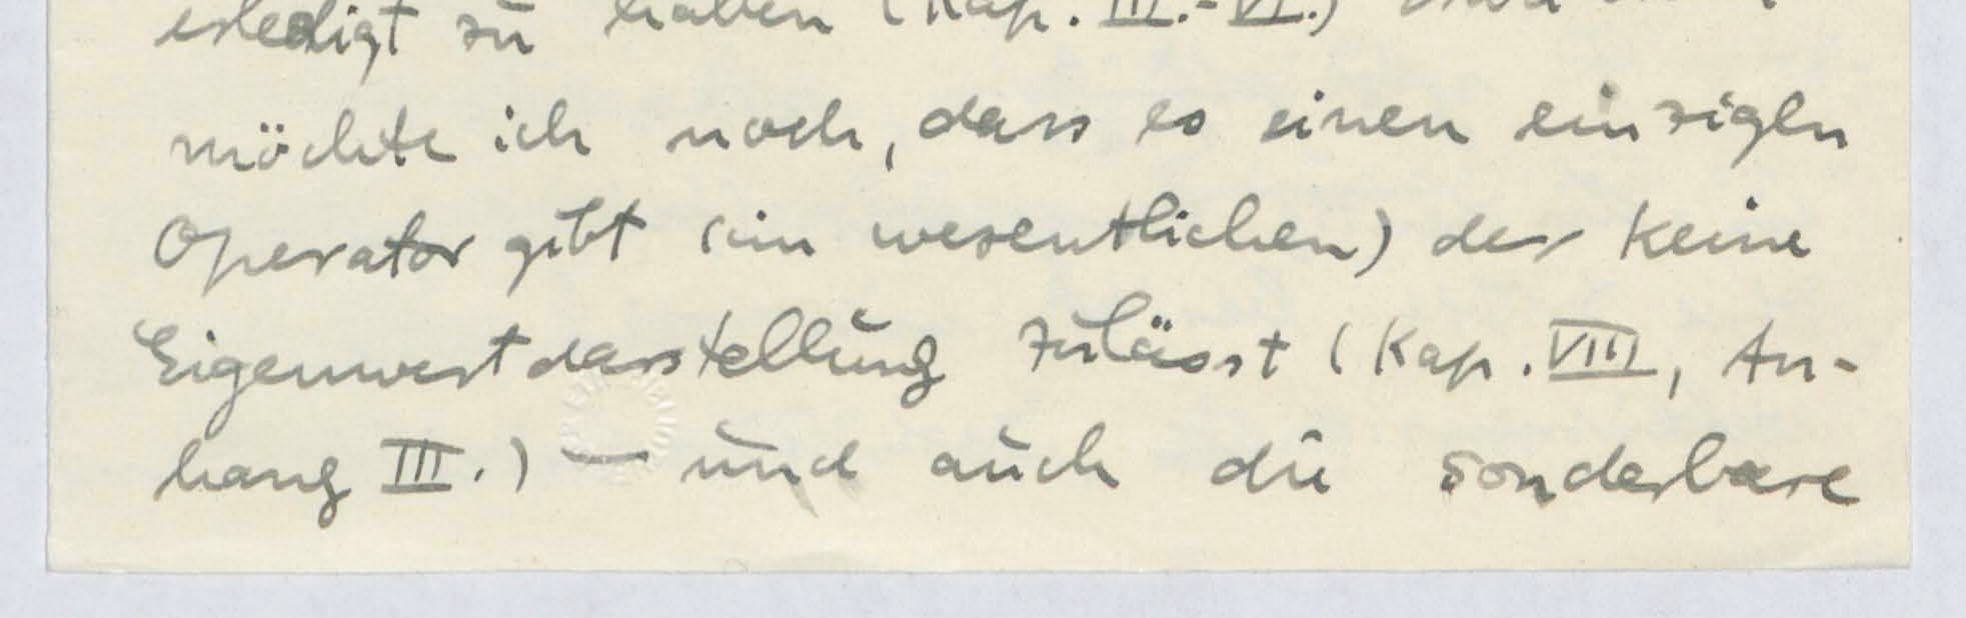 erledigt zu haben (Kap. III.-VI.)
möchte ich noch, dass es einen einzigen
Operator gibt (im wesentlichen) der keine
Eigenwertdarstellung zulässt (Kap. VIII, An-
hang III.) — und auch die sonderbare